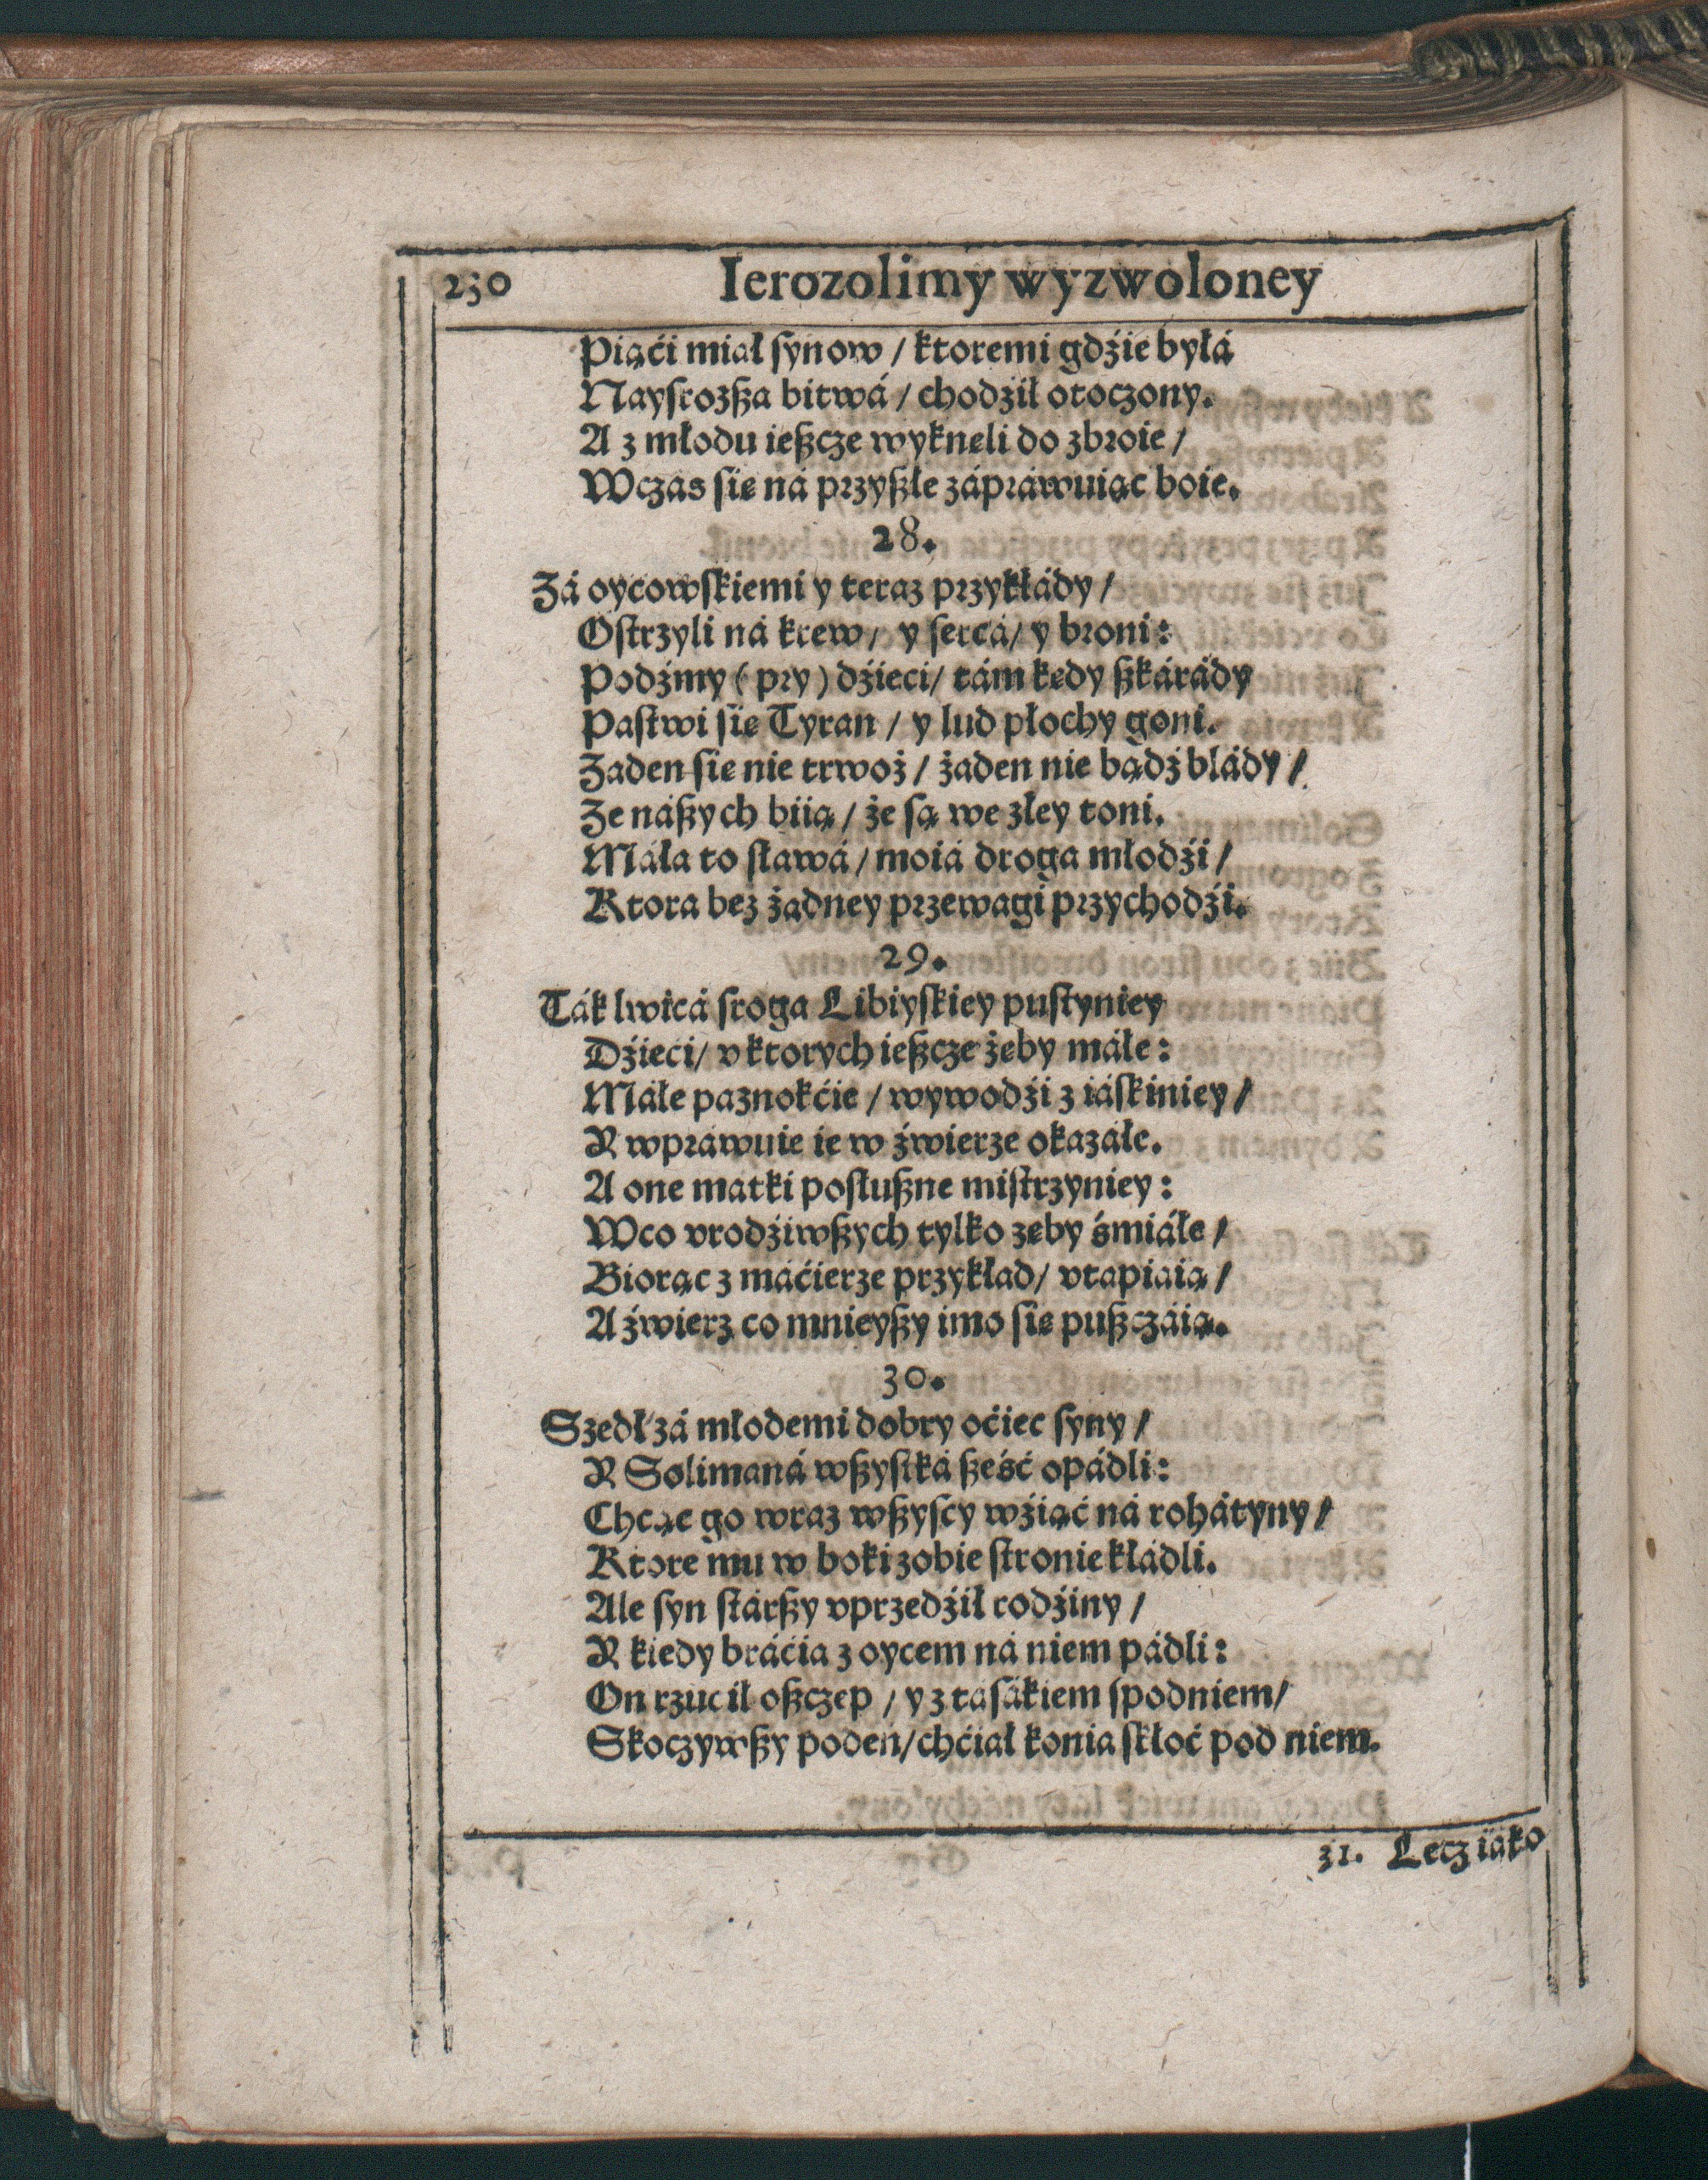 230 Ierozolimy wyzwoloney
Piąći miał ſynow / ktoremi gdźie byłá
Nayſrozßa bitwá / chodźił otoczony.
A z młodu ießcze wykneli do zbroie /
Wczás ſię ná przyßłe zápráwuiąc boie.
28.
Zá oycowſkiemi y teraz przykłády /
Oſtrzyli ná krew / y ſercá / y broni:
Podźmy (pry) dźieci / tám kędy ßkárády
Paſtwi ſię Tyran / y lud płochy goni.
Zaden ſię nie trwoż / żaden nie bądź blády /
Ze náßych biią / że ſą we złey toni.
Máła to ſławá / moiá droga młodźi /
Ktora bez żadney przewagi przychodźi.
29.
Ták lwicá ſroga Libiyſkiey puſtyniey
Dźieci / v ktorych ießcze żeby máłe:
Máłe paznokćie / wywodźi z iáſkiniey /
Y wpráwuie ie w źwierze okazáłe.
A one matki poſłußne miſtrzyniey:
Wco vrodźiwßych tylko zeby śmiáłe /
Biorąc z máćierze przykład / vtapiaią /
A źwierz co mnieyßy imo ſię pußczáią.
30.
Szedł zá młodemi dobry oćiec ſyny /
Y Solimaná wßyſtká ßeść opádli:
Chcąc go wraz wßyſcy wźiąć ná rohátyny /
Ktore mu w boki z obie ſtronie kłádli.
Ale ſyn ſtárßy vprzedźił rodźiny /
Y kiedy bráćia z oycem ná niem pádli:
On rzucił oßczep / y z taſákiem ſpodniem /
Skoczywßy podeń / chćiał konia ſkłoć pod niem.
31. Lecz iáko